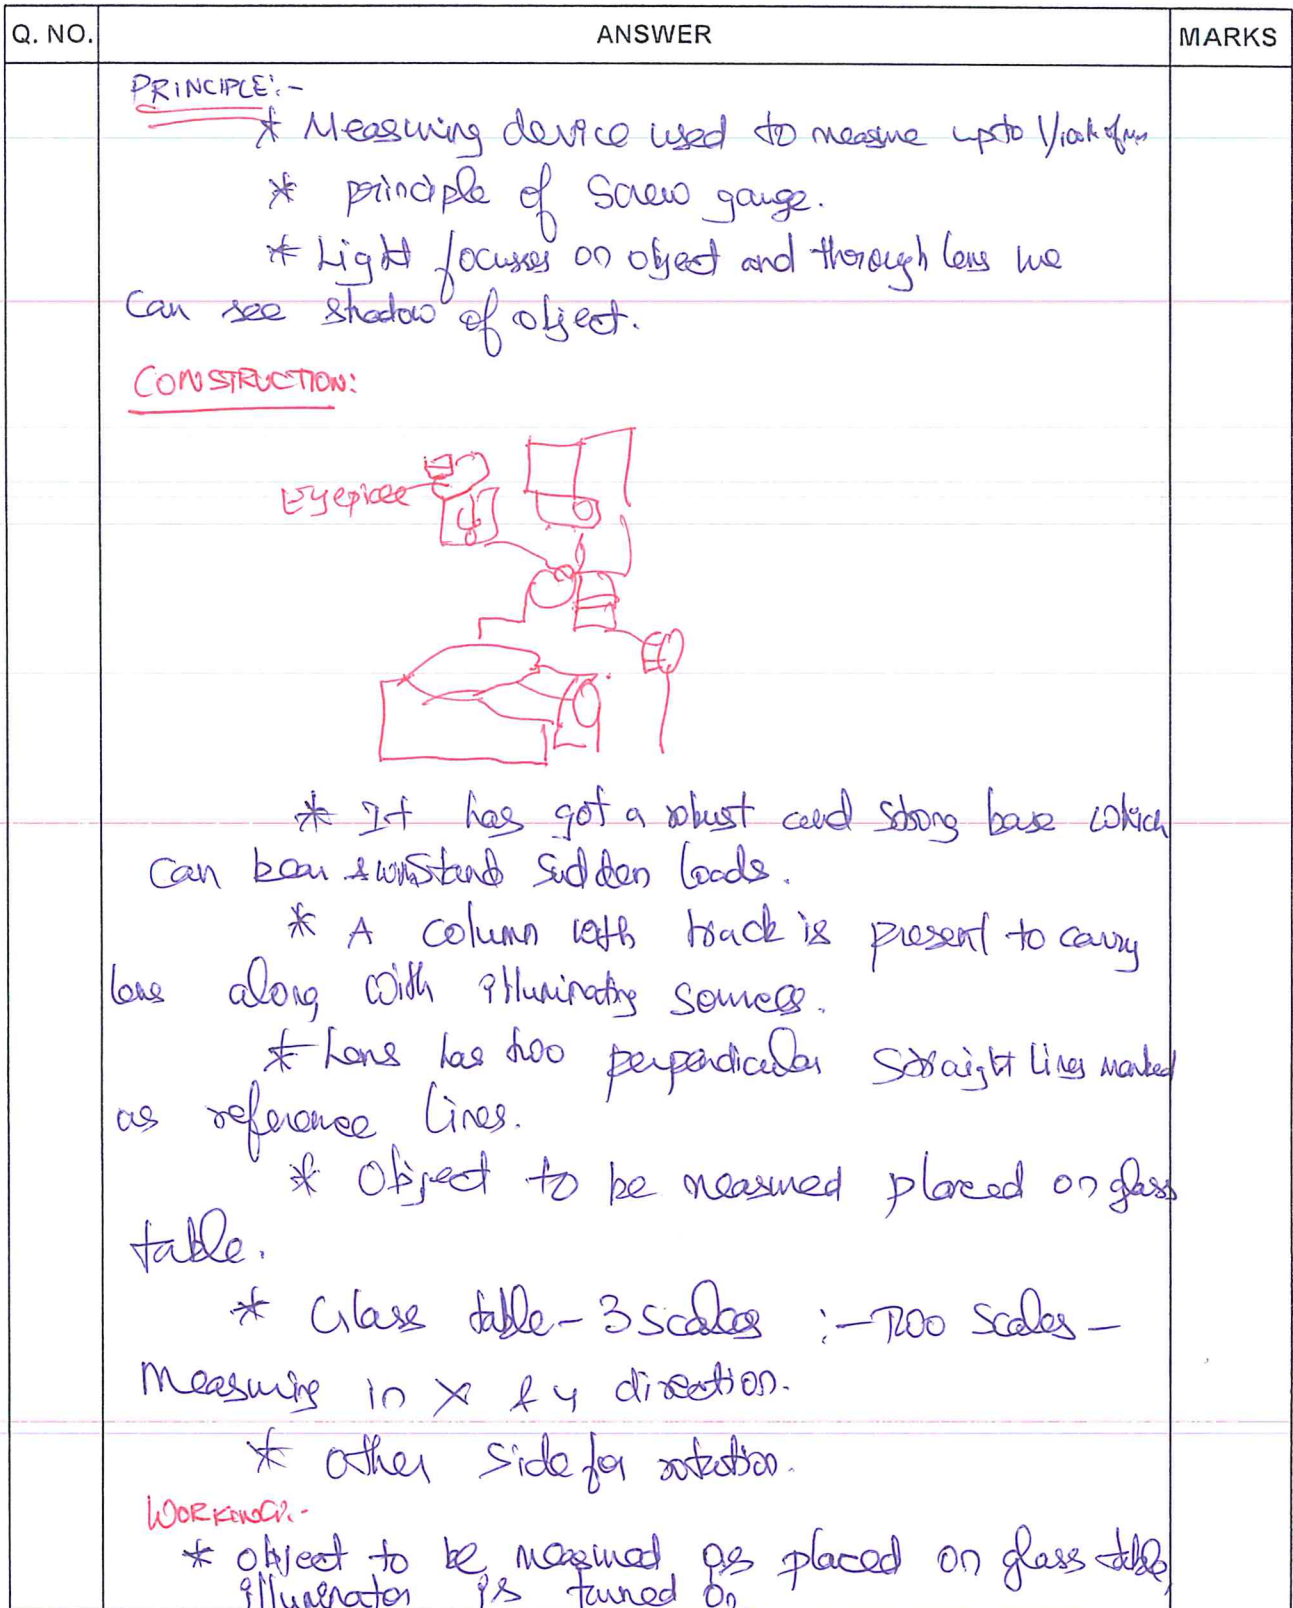 Q. NO. ANSWER MARKS
PRINCIPLE:-
* Measuring device used to measure upto
* principle of Screw gauge.
* Light focusses on object and through lens we
Can see shadow of object.
CONSTRUCTION:
Eyepiece
* It has got a robust and strong base which
Can bear & sudden loads.
* A column with track is present to carry
lens along with illuminating sources.
* Lens has two perpendicular straight lines marked
as reference lines.
* Object to be measured placed on glass
table.
* Glass table - 3 Scales :- Two Scales -
Measuring in X & y direction.
* other side for rotation.
WORKING:-
* object to be measured is placed on glass table,
illuminator is turned on